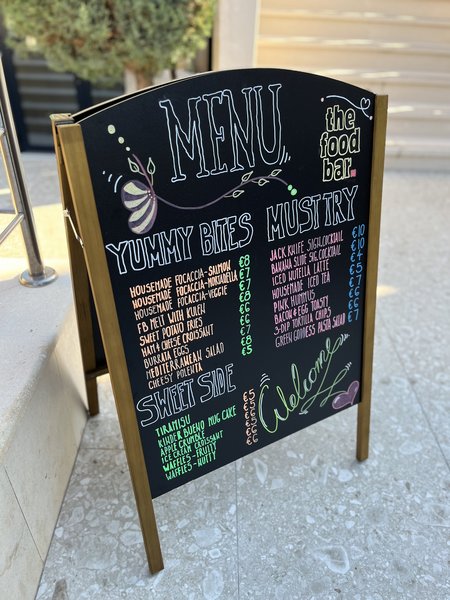 MENU
the
food
bar.
YUMMY BITES
HOUSEMADE FOCACCIA-SALMON €8
HOUSEMADE FOCACCIA-MORTADELLA €7
HOUSEMADE FOCACCIA-VEGGIE €7
FB MELT WITH KULEN €8
SWEET POTATO FRIES €6
HAM & CHEESE CROISSANT €6
BURRATA EGGS €7
MEDITERRANEAN SALAD €8
CHEESY POLENTA €5
MUST TRY
JACK KNIFE SIGN. COCKTAIL €10
BANANA SLIDE SIG. COCKTAIL €10
ICED NUTELLA LATTE €4
HOUSEMADE ICED TEA €5
PINK HUMMUS €7
BACON & EGG TOASTY €6
3-DIP TORTILLA CHIPS €6
GREEN GODDESS PASTA SALAD €7
SWEET SIDE
TIRAMISU €5
KINDER BUENO MUG CAKE €5
APPLE CRUMBLE €5
ICE CREAM CROISSANT €6
WAFFLES-FRUITY €6
WAFFLES-NUTTY €6
Welcome